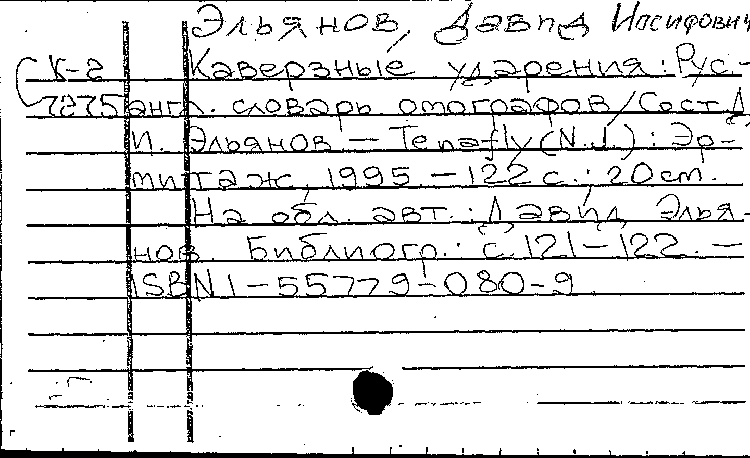 Эльянов, Давид Иосифович
К-2 Каверзные ударения: Рус-
7275 англ. словарь омографов/Сост. Д.
И. Эльянов — Tenafly (N.J.): Эр-
митаж, 1995. — 122 с.; 20 cm.
На обл. авт.: Давид Элья-
нов. Библиогр.: с. 121-122. —
ISBN 1-55779-080-9